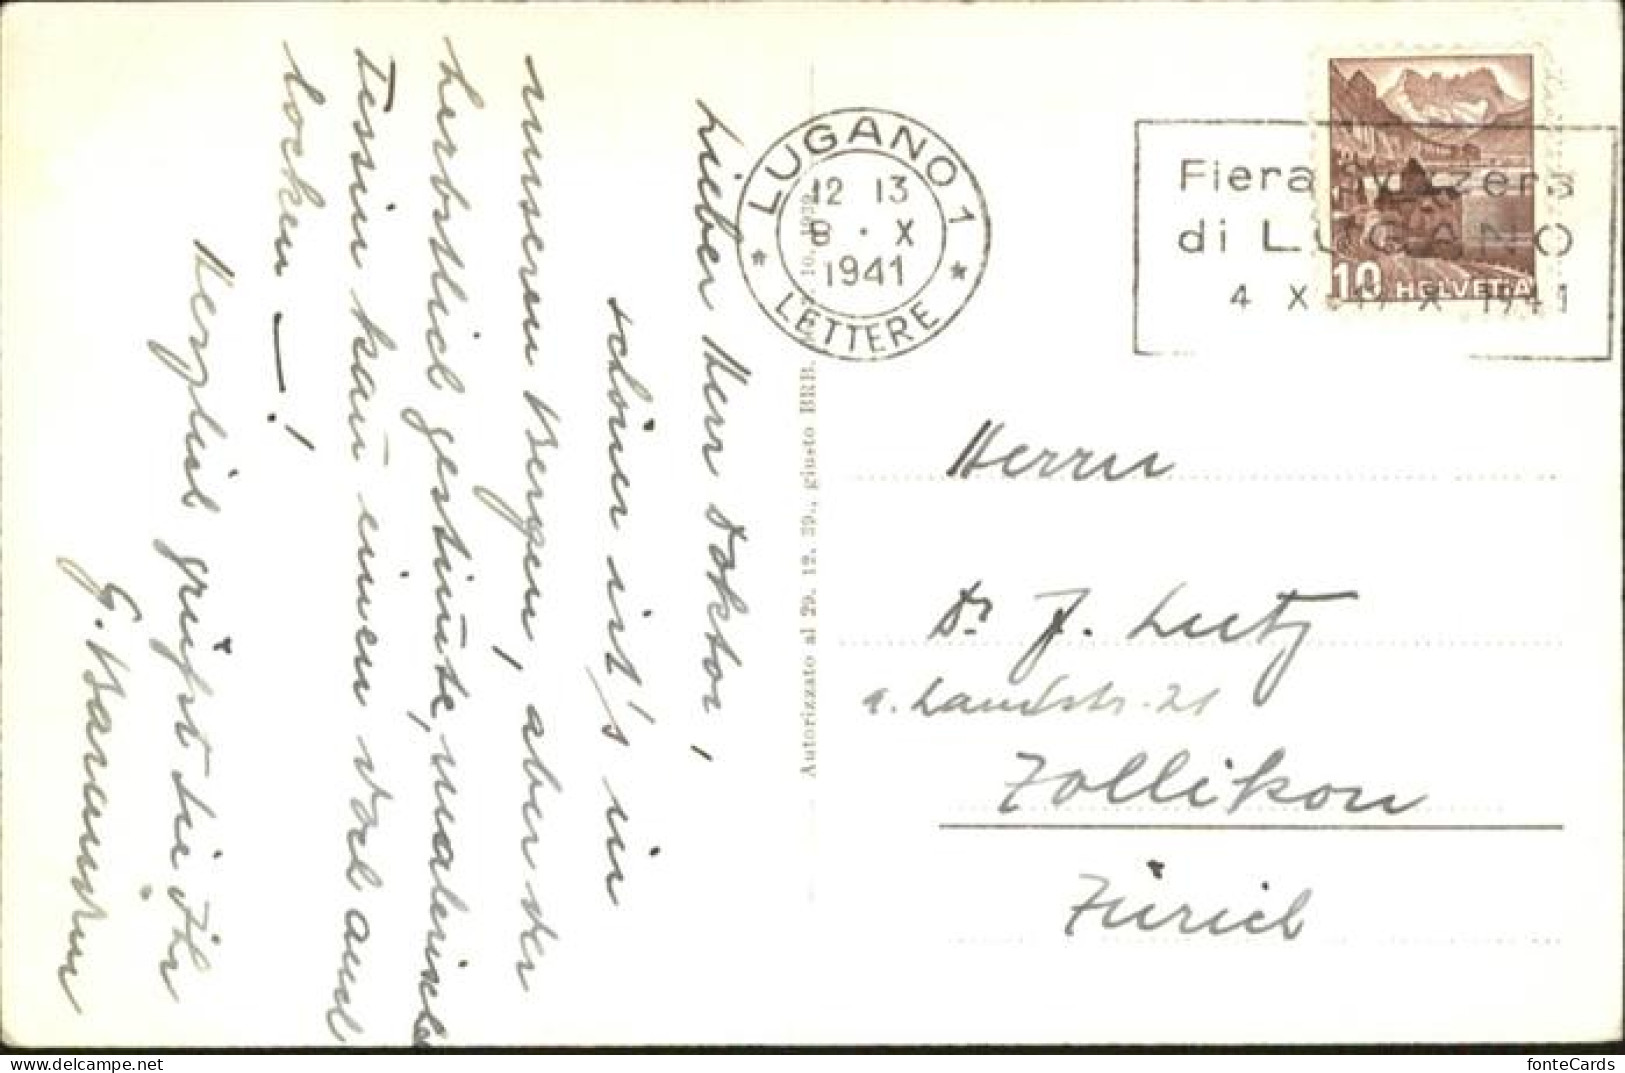 Lieber Herr Doktor,
schöner ist's in
unseren Bergen, aber der
herbstlich gestim̄te, malerische
Tessin kan̄ einen doch auch
locken —!
Herzlich grüßt Sie Ihr
LUGANO 1
12 13
8 · X
1941
* LETTERE *
Fiera Svizzera
di LUGANO
4 X 19 X 1941
10 HELVETIA
Autorizzato al 29. 12. 39., giusto BRB. 3. 10. 1939.
Herrn
Dr. J. Lutz
a. Landstr. 21
Zollikon
Zürich
fonteCards